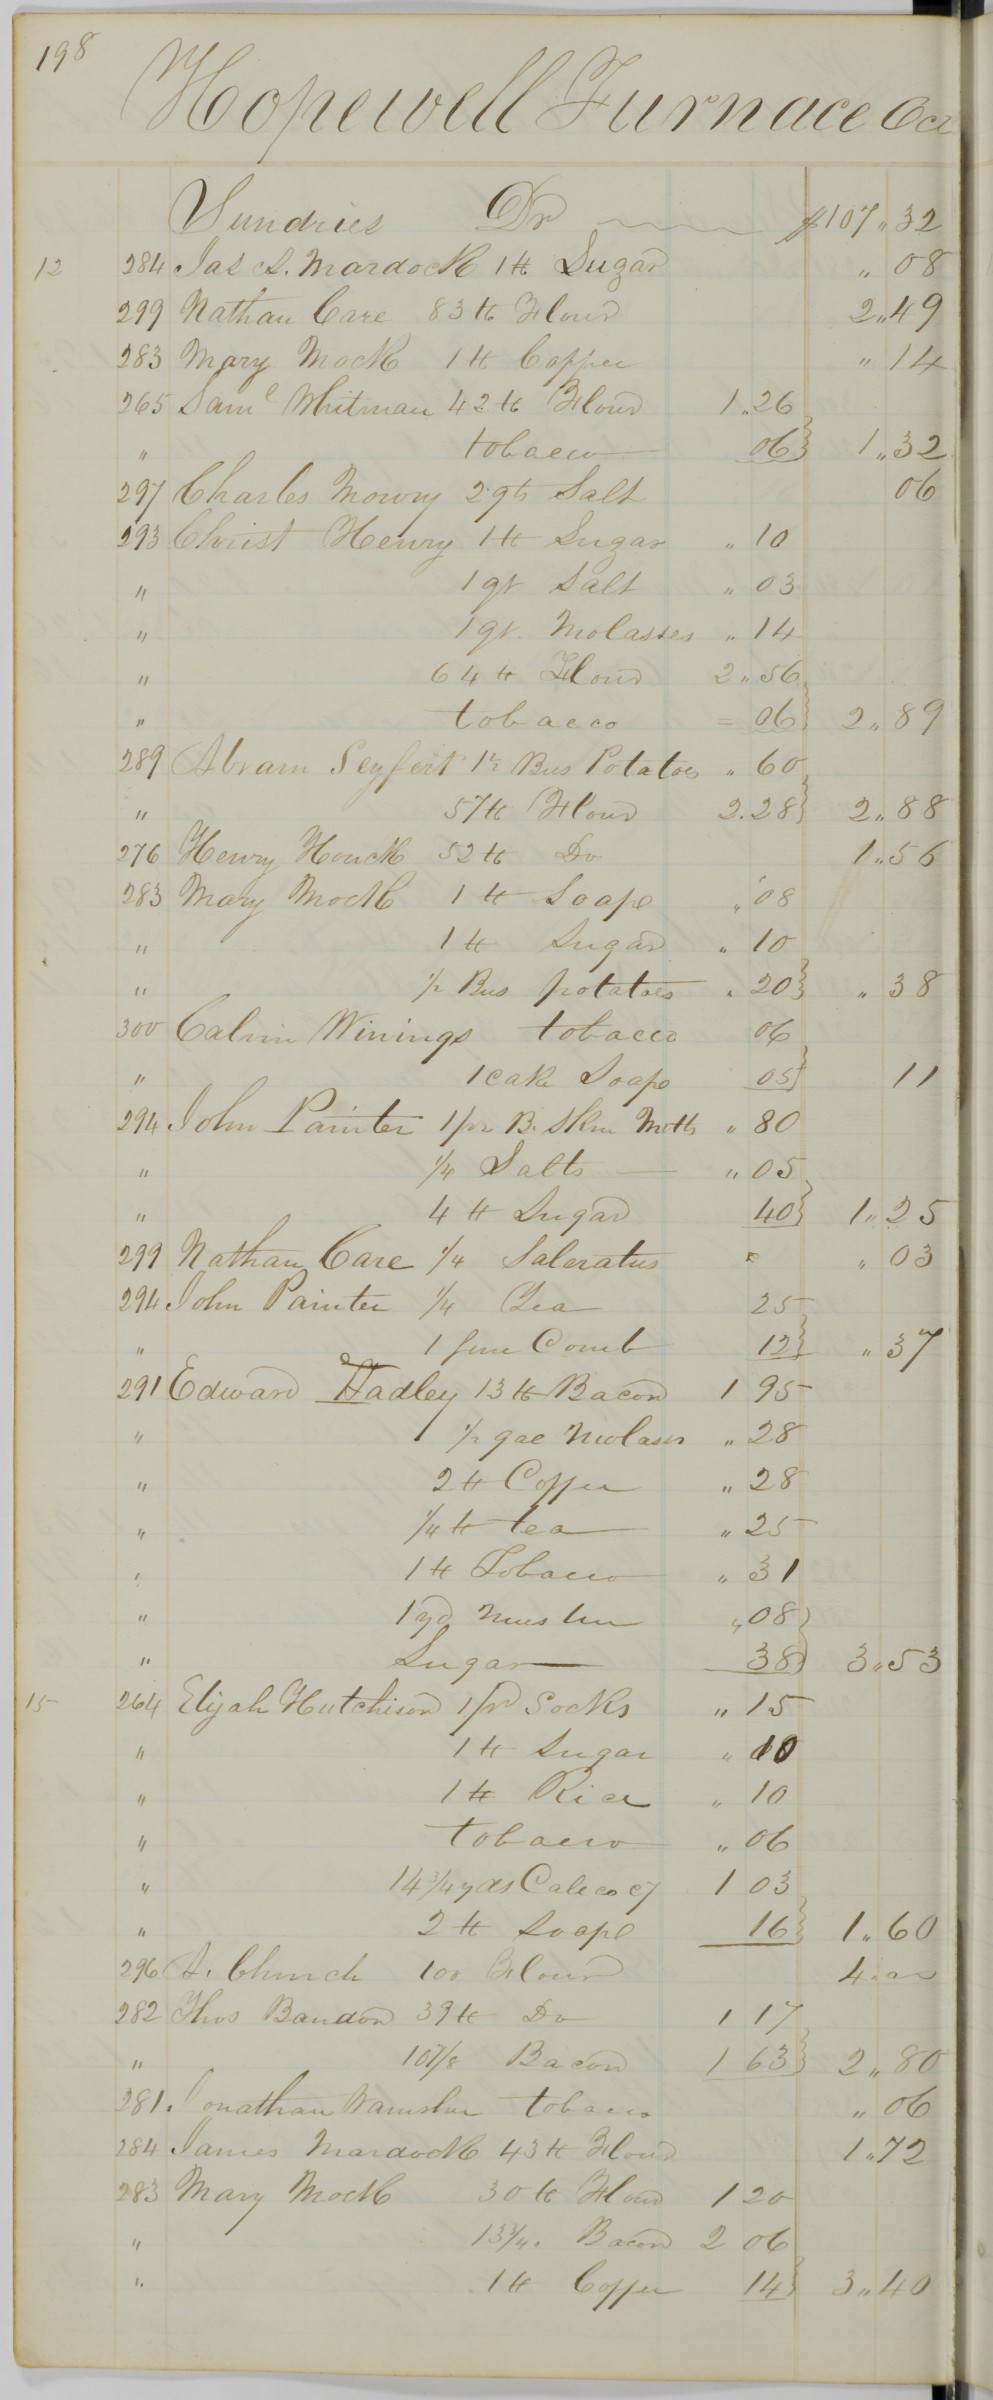 198
Hopewell Furnace
Sundries Dr $107 " 32
12 284 Jas S. Mardock 1 lb Sugar " 08
299 Nathan Care 83 lb Flour 2 " 49
283 Mary Mock 1 lb Coffee " 14
265 Saml Whitman 42 lb Flour 1 " 26
" tobacco 06 } 1 " 32
297 Charles Mowry 2 qts Salt 06
293 Christ Henry 1 lb Sugar " 10
" 1 qt Salt " 03
" 1 qt. Molasses " 14
" 64 lb Flour 2 " 56
" tobacco = 06 } 2 " 89
289 Abram Seyfert 1½ Bus Potatoes " 60
" 57 lb Flour 2.28 } 2 " 88
276 Henry Houck 52 lb Do 1 " 56
283 Mary Mock 1 lb Soape " 08
" 1 lb Sugar " 10
" ½ Bus potatoes " 20 } " 38
300 Calvin Winings tobacco 06
" 1 cake Soape 05 } 11
294 John Painter 1 pr B. Skin Mitts " 80
" ¼ Salts " 05
" 4 lb Sugar 40 } 1 " 25
299 Nathan Care ¼ Saleratus " 03
294 John Painter ¼ Tea 25
" 1 fine Comb 12 } " 37
291 Edward Hadley 13 lb Bacon 1 95
" ½ gal Molases " 28
" 2 lb Coffee " 28
" ¼ lb tea " 25
" 1 lb Tobacco " 31
" 1 yd Muslin " 08
" Sugar 38 } 3 " 53
15 264 Elijah Hutchison 1 pr Socks " 15
" 1 lb Sugar " 10
" 1 lb Rice " 10
" tobacco " 06
" 14¾ yds Calico 1 03
" 2 lb Soape 16 } 1 " 60
296 A. Church 100 Flour 4 " 00
282 Thos Baudon 39 lb Do 1 17
" 10⅞ Bacon 1 63 } 2 " 80
281. Jonathan tobacco " 06
284 James Mardock 43 lb Flour 1 " 72
283 Mary Mock 30 lb Flour 1 20
" 13¾ " Bacon 2 06
" 1 lb Coffee 14 } 3 " 40